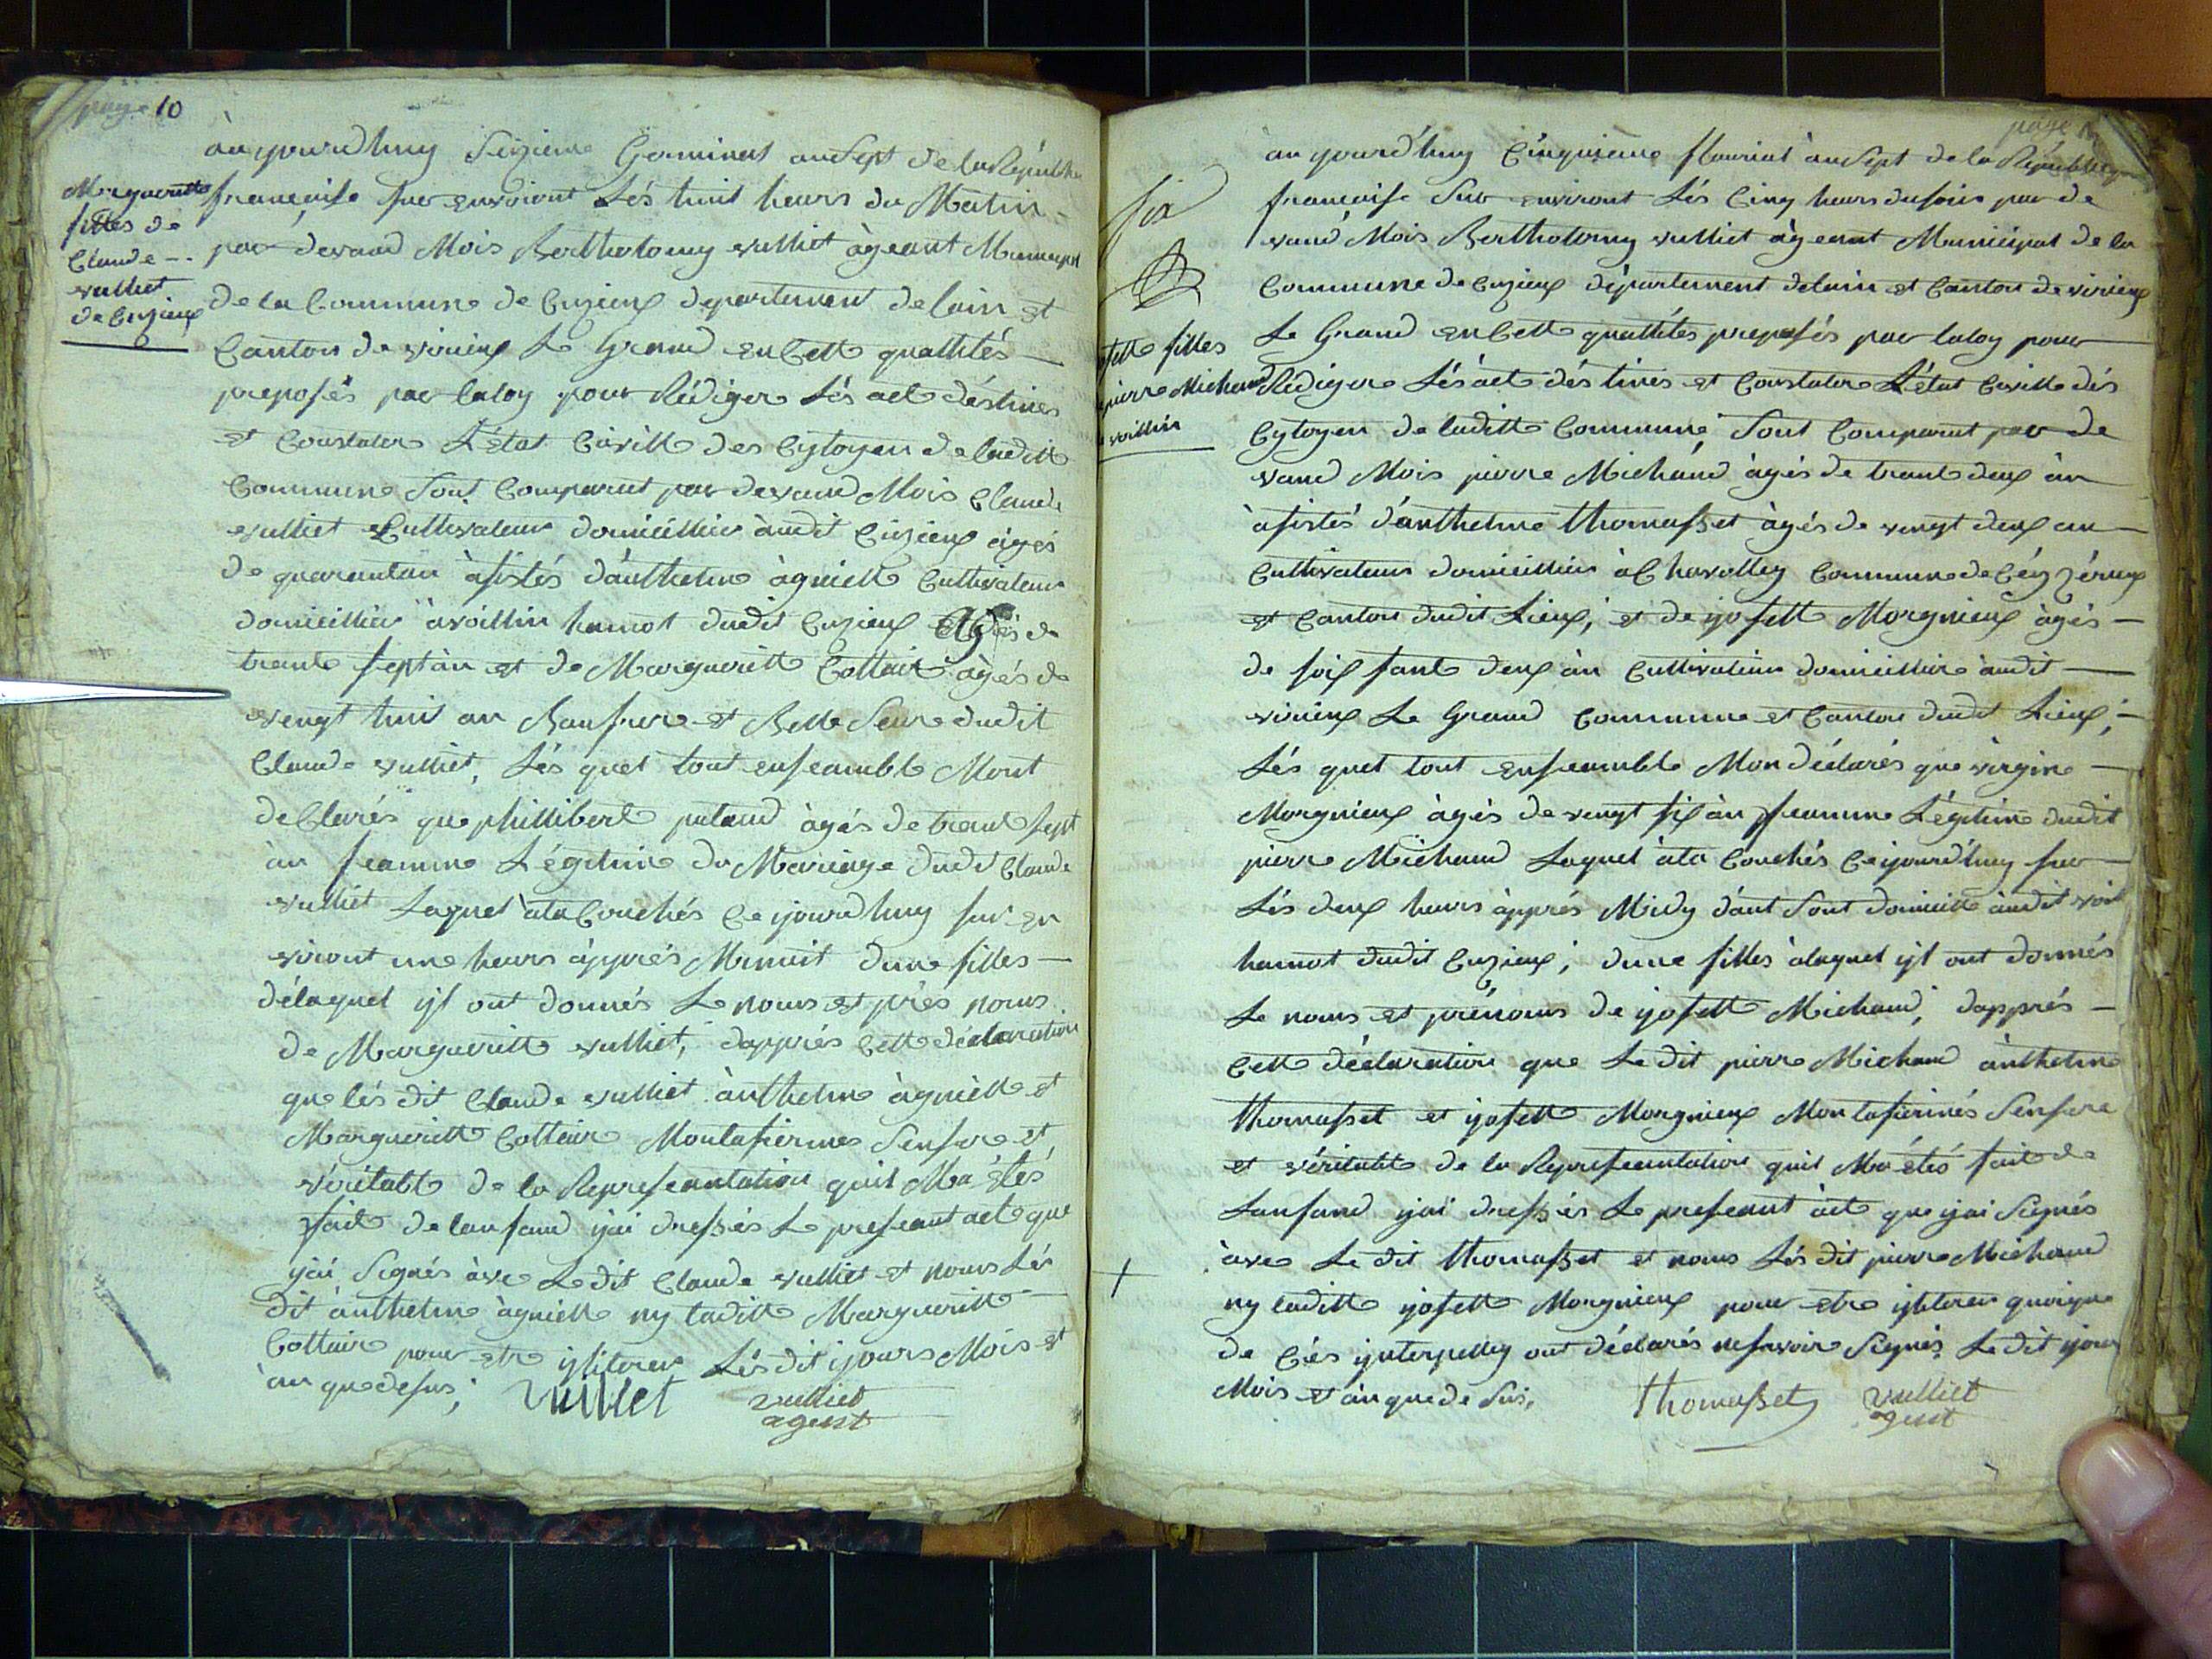 page 10
Margueritte
filles de
Claude --
vulliet
de Cuzieux
àu yjourdhuy Seizieme Germinal an Sept de la Républi
francaise sur environt Lés huit heurs du Matin -
par devand Mois Bertholomy vulliet àgeant Municipal
de la Commune de Cuzieux departement de lain et
Canton de virieux Le Grand en Cette quallités —
preposés par laloy pour Rédiger Lés act déstines
et Constater L'état Civille des Cytoyen de laditte
Commune Sont Comparut par devand Mois Claude
vulliet Cultivateur domicillier àudit Cuzieux àgés
de quarantan àsistés dànthelme àgniette Cultivateur
domicillier à voillin hamot dudit Cuzieux agés de
trante sept àn et de Margueritte Cottair àgés de
vengt huit an Baufrere et Belle Seure dudit
Claude vulliet, Lés quel tout enseamble Mont
déClarés que phillibert putaud àgés de trante sept
àn feamme Légitime du Mariage dudit Claude
vulliet Laquel àta Couchés Ce yjourdhuy sur en
viront une heurs àpprés Minuit dune filles —
délaquel yl ont donnés Le noms et prés noms
de Margueritte vulliet, dapprés Cette déclaration
que lés dit Claude vulliet ànthelme àgniette et
Margueritte Cottair Montafirmes Senfere et
véritable de la Represeantation quil Ma étés
faite de lanfand yjai dressés Le preseant act que
yjai Signés àvec Le dit Claude vulliet et noms Lés
dit ànthelme àgniette ny laditte Margueritte —
Cottair pour etre yliterer Lésdit yjours Mois et
àn quedesus; Vulliet vulliet
agent
page
six
sette filles
pierre Michaud
voillin
àu yjourd'huy Cinquieme flourial àn Sept de la République
francaise Sur environt Lés Cinq heurs dusoir par de
vand Mois Bertholomy vulliet àgeant Municipal de la
Commune de Cuzieux département delain et Canton de virieux
Le Grand en Cette quallités preposés par laloy pour
Rédigere Lés act dés tinés et Constatere L'état Civille dés
Cytoyen de laditte Commune, Sont Comparut par de
vand Mois pierre Michaud àgés de trante deux àn
àsistés d'anthelme thomasset àgés de vengt deux an —
Cultivateur domicillier à Chavolley Commune de Céyzérieux
et Canton dudit Lieux; et de yjosette Morgnieux àgés —
de soissante deux àn Cultivateur domicillier àudit —
virieux Le Grand Commune et Canton dudit Lieux; —
Lés quel tout enseamble Mon déclarés que virgine —
Morgnieux àgés de vengt six àn feamme Légitime dudit
pierre Michaud Laquel àta Couchés Ce yjourd'huy sur —
Lés deux heurs àpprés Midy dant Sont domicille àudit voil
hamot dudit Cuzieux; dune filles àlaquel yl ont donnés
Le noms et prénoms de yjosette Michaud, dapprés —
Cette déclaration que Le dit pierre Michaud ànthelme
thomasset et yjosette Morgnieux Montafirmés Senfere
et véritable de la Represeantation quil Ma étés fait de
Lanfand yjai dressés Le preseant àct que yjai Signés
àvec Le dit thomasset et noms Lés dit pierre Michaud
ny laditte yjosette Morgnieux pour etre yliterer quoique
de Cés ynterpelley ont déclarés nesavoir Signés Le dit yjour
Mois et àn que de Sus, thomasset vulliet
agent